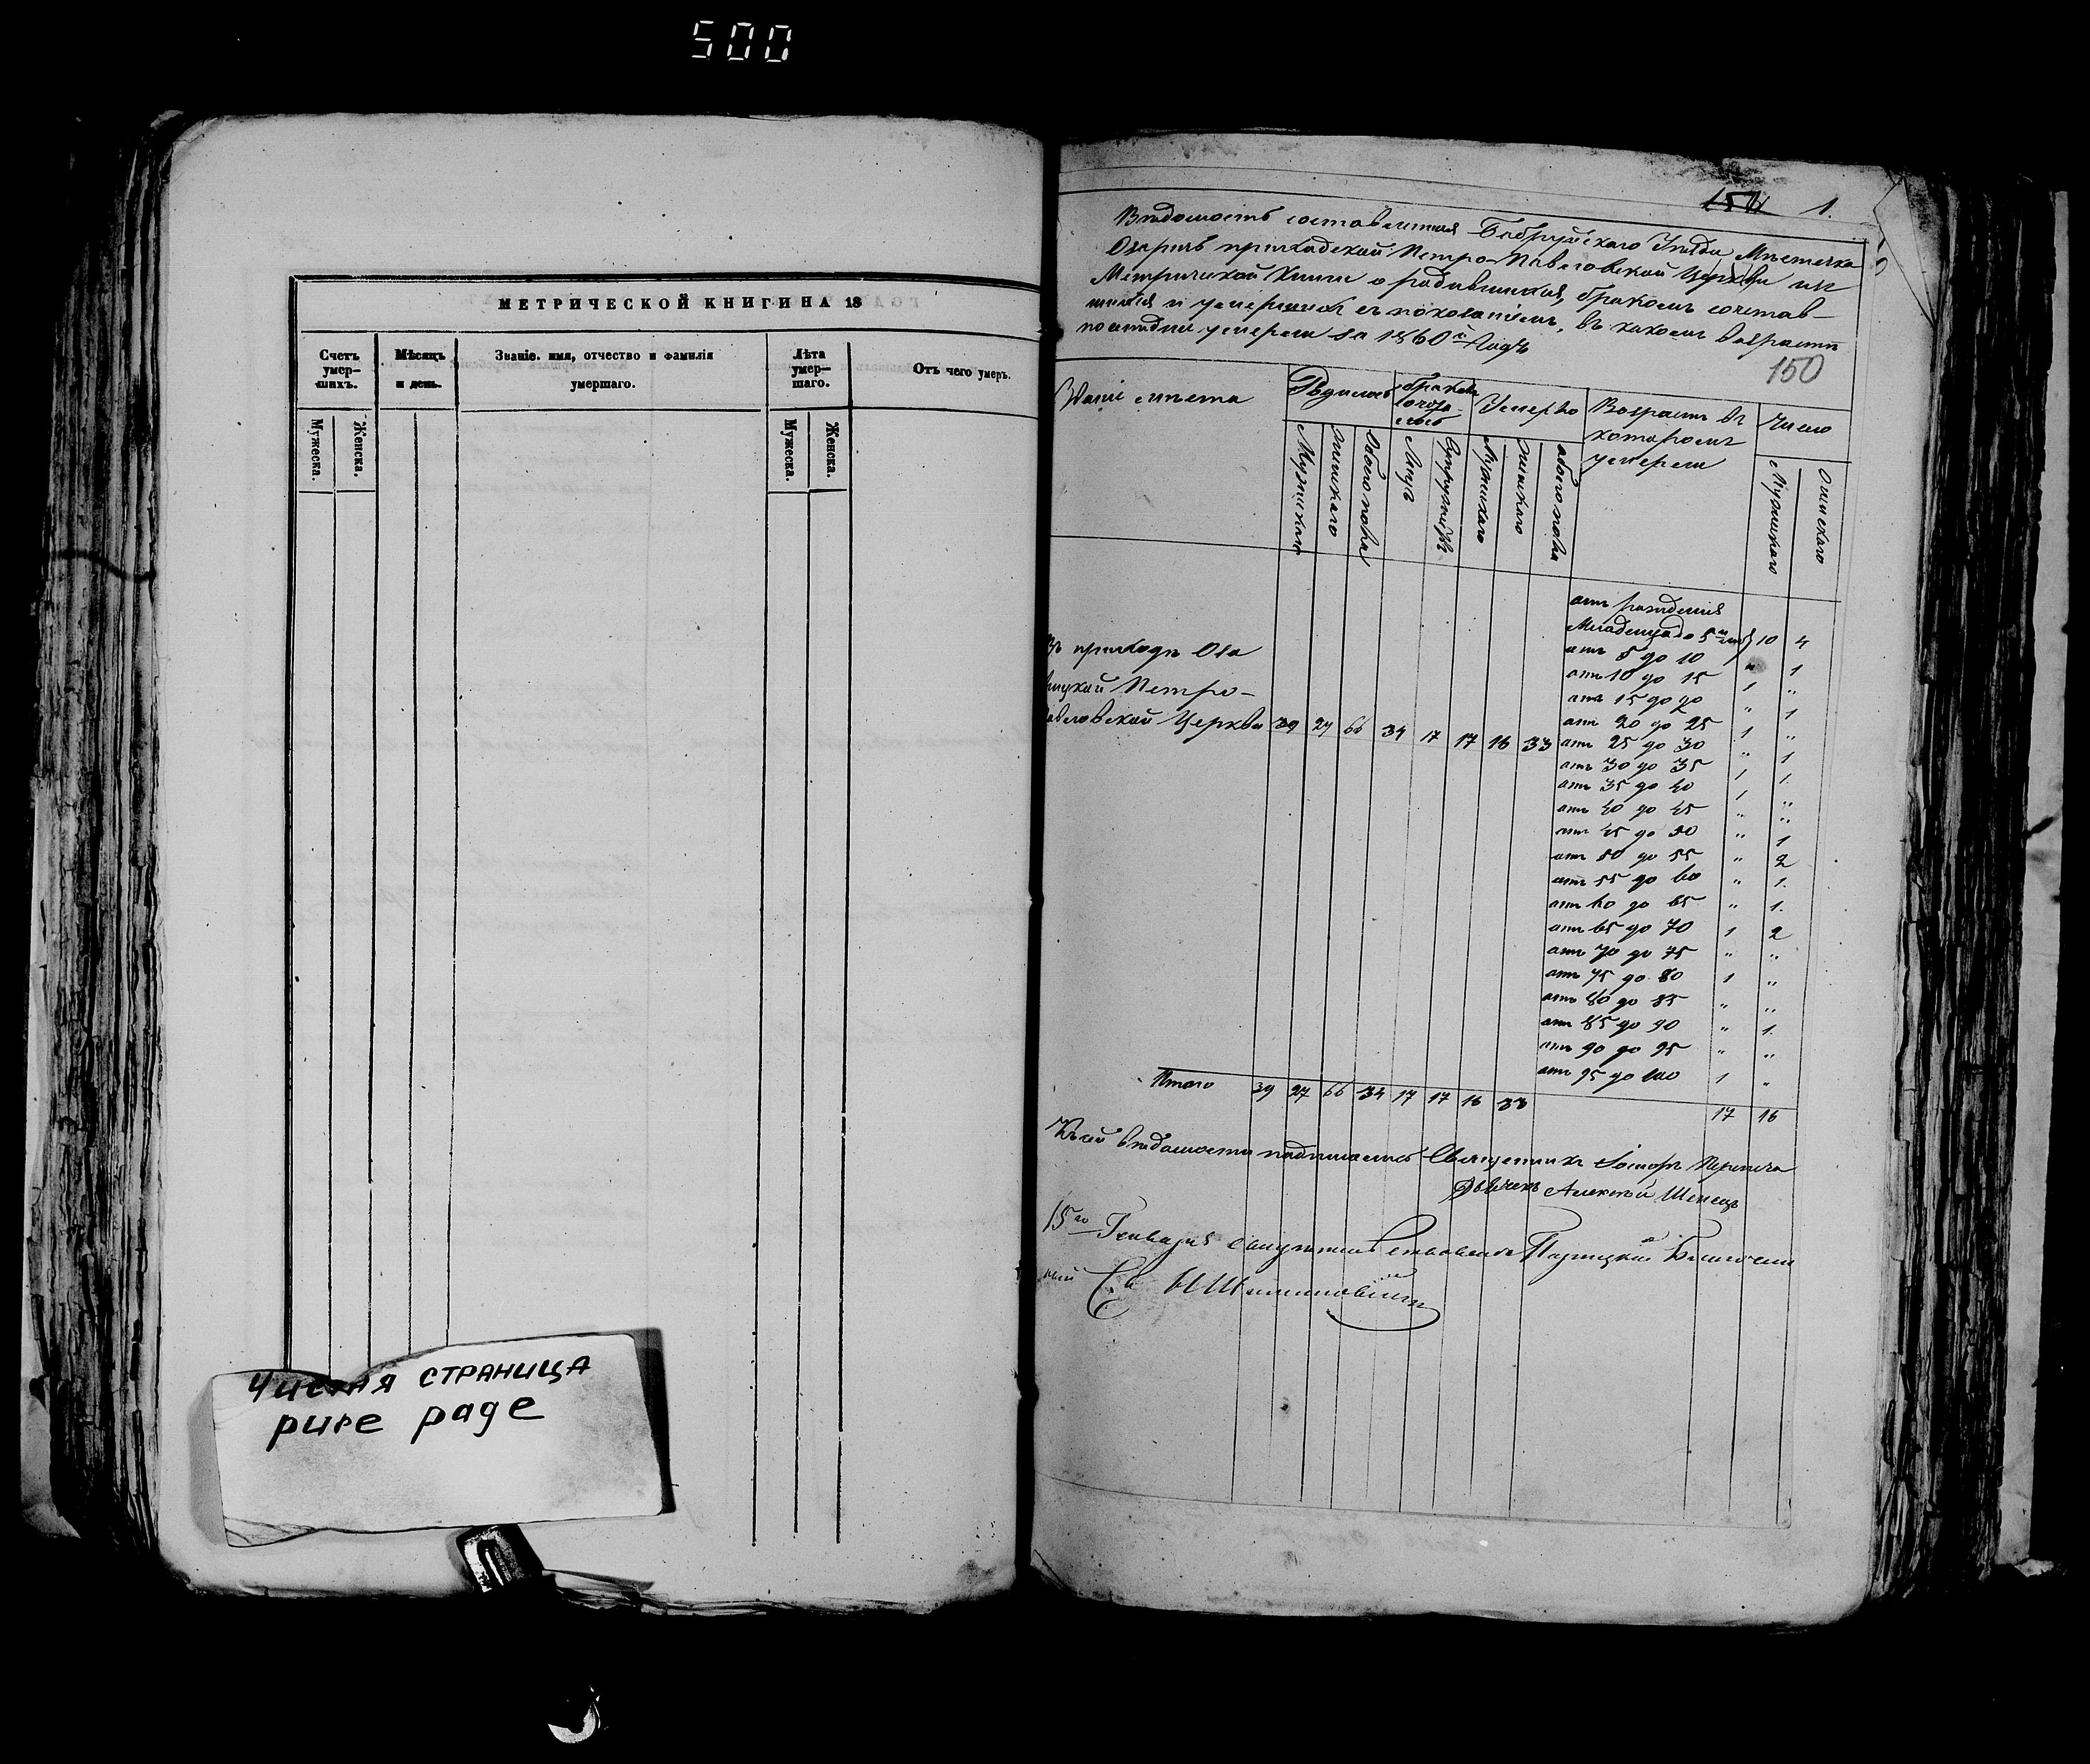 500
МЕТРИЧЕСКОЙ КНИГИ НА 18
Счетъ умер-шихъ.
Мѣсяцъ и день.
Званіе. имя, отчество и фамилія умершаго.
Лѣта умер-шаго.
Отъ чего умеръ.
Мужеска.
Женска.
Мужеска.
Женска.
Чистая страница
pure page
1.
Вѣдомость составленная Бобруйскаго Уѣзда Мѣстечка
приходской Петро-Павловской Церкви изъ
Метрической Книги о родившихся, бракомъ сочетав-
шихся и умершихъ съ показаніемъ, въ какомъ возрастѣ
послѣдніе умерли за 1860й Годъ
150
Званіе мѣста
Родилось
Умерло
Возрастъ въ
которомъ
умерли
Число
Мужескаго
Женскаго
Обоего пола
Лицъ
Мужескаго
Женскаго
обоего пола
Мужескаго
Женскаго
отъ рожденія
10 4
отъ 5 до 10 " 1
отъ 10 до 15 1 "
отъ 15 до 20 " 1
отъ 20 до 25 1 "
отъ 25 до 30 " 1
отъ 30 до 35 1 1.
отъ 35 до 40 1 "
отъ 40 до 45 " "
отъ 45 до 50 " 1
отъ 50 до 55 " 2
отъ 55 до 60 " 1.
отъ 60 до 65 " 1.
отъ 65 до 70 1 2
отъ 70 до 75 " "
отъ 75 до 80 1 "
отъ 80 до 85 " "
отъ 85 до 90 " 1.
отъ 90 до 95 " "
отъ 95 до 100 1 "
Въ приходѣ
Петро-
Павловской Церкви 39 27 66 34 17 17 16 33
Итого 39 27 66 34 17 17 16 33 17 16
Къ сей вѣдомости подписались Священникъ
Алексѣй
15го Генваря